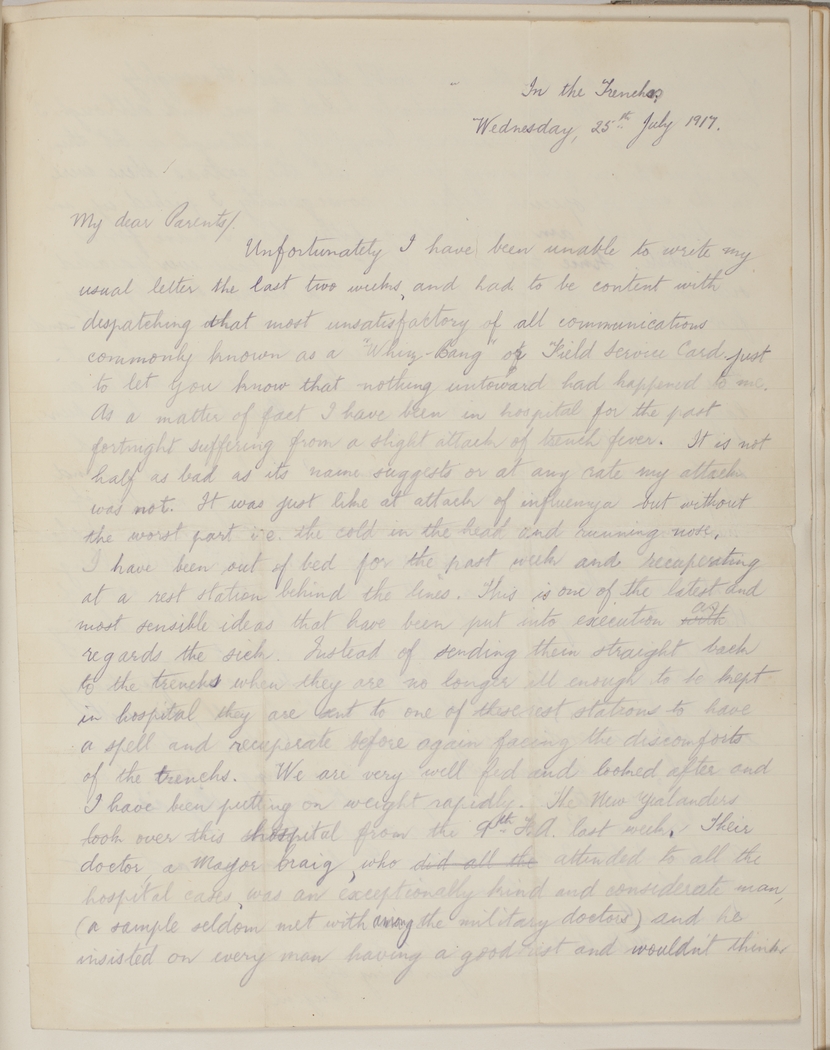 In the Trenches
Wednesday, 25th July 1917.
My dear Parents/.
Unfortunately I have been unable to write my
usual letter the last two weeks, and had to be content with
dispatching that most unsatisfactory of all communications
commonly known as a "Whiz-Bang" or Field Service Card just
to let you know that nothing untoward had happened to me.
As a matter of fact I have been in hospital for the past
fortnight suffering from a slight attack of trench fever. It is not
half as bad as its name suggests or at any rate my attack
was not. It was just like at attack of influenza but without
the worst part i.e. the cold in the head and running nose.
I have been out of bed for the past week and recuperating
at a rest station behind the lines. This is one of the latest and
most sensible ideas that have been put into execution with as
regards the sick. Instead of sending them straight back
to the trenchs when they are no longer ill enough to be kept
in hospital they are sent to one of these rest stations to have
a spell and recuperate before again facing the discomforts
of the trenchs. We are very well fed and looked after and
I have been putting on weight rapidly. The New Zealanders
took over this hospital from the 9th F.A. last week. Their
doctor, a Mayor Craig, who did all the attended to all the
hospital cases, was an exceptionally kind and considerate man,
(a sample seldom met with among the military doctors) and he
insisted on every man having a good rest and wouldn't think